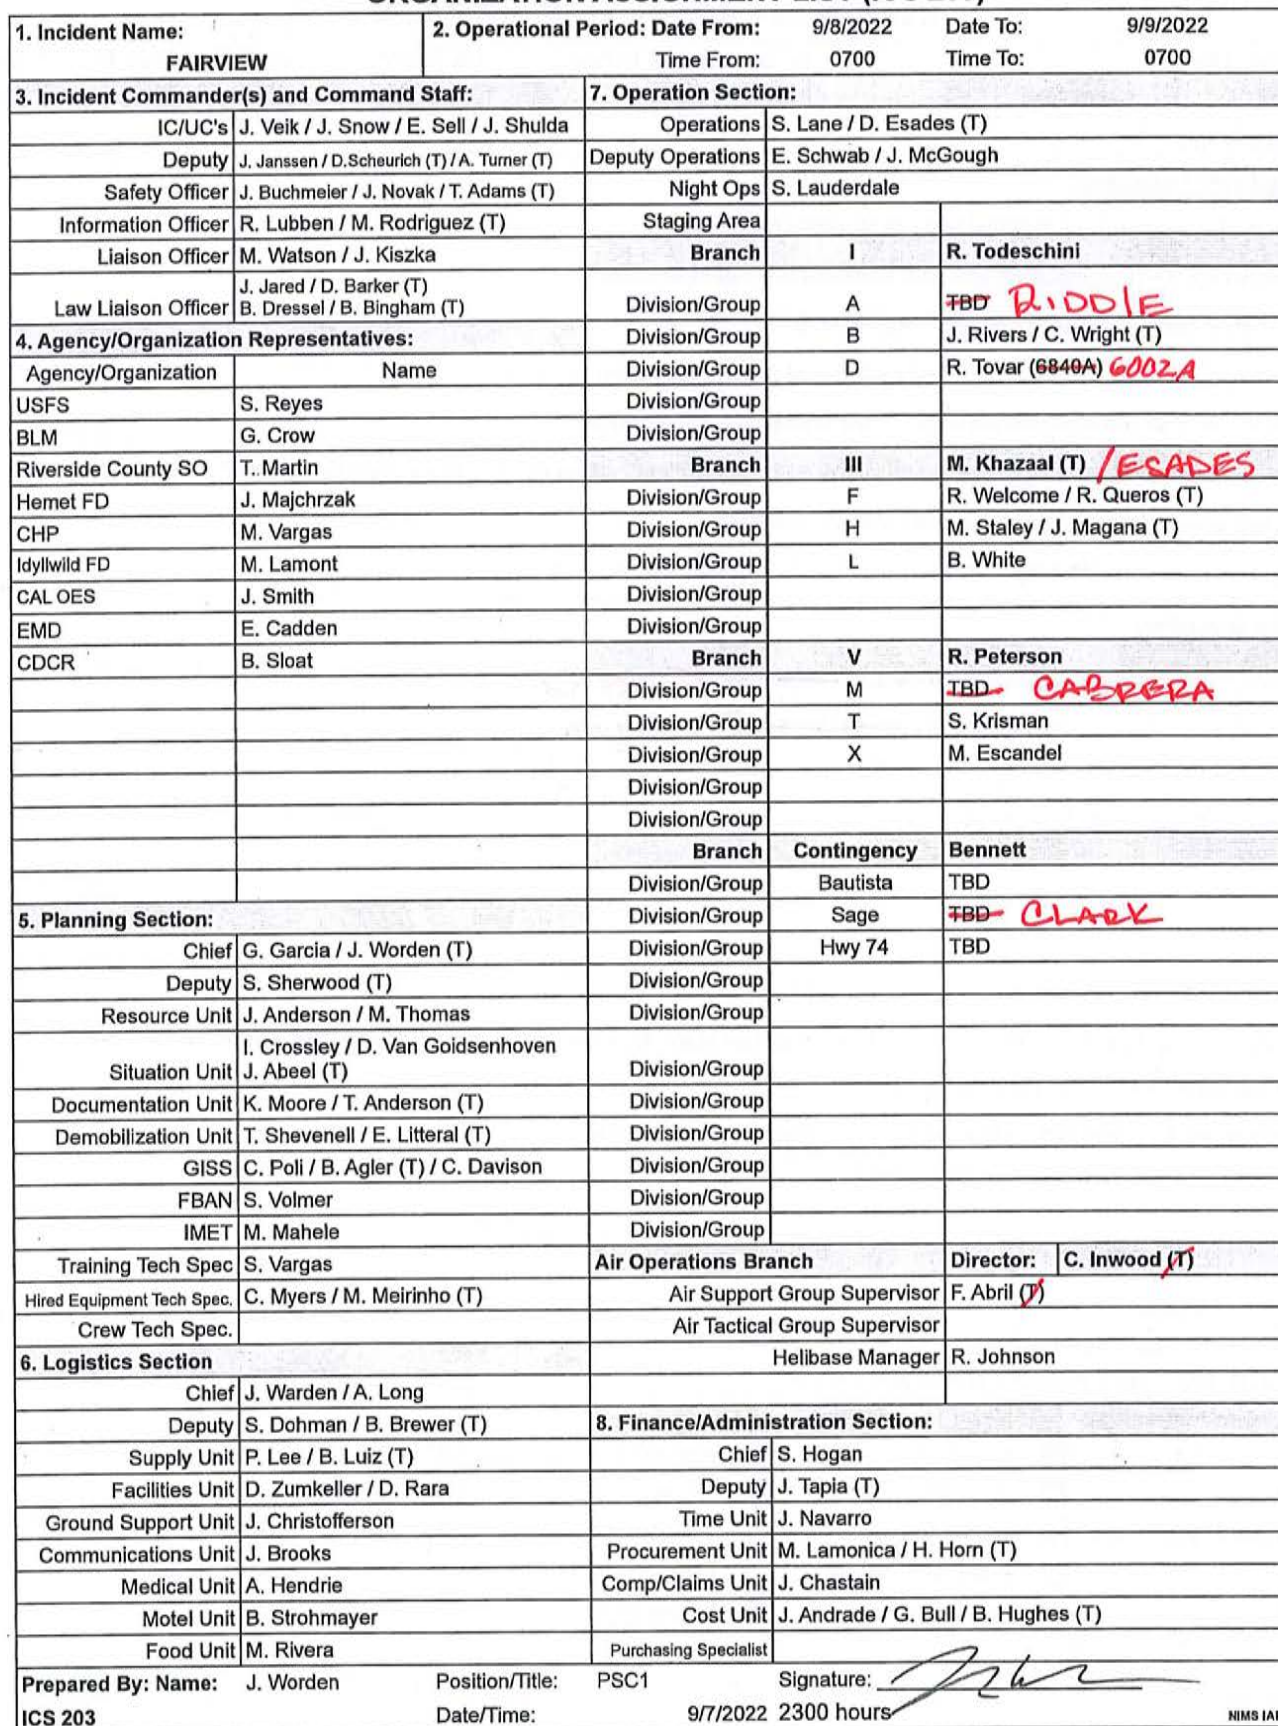 1. Incident Name:
FAIRVIEW
2. Operational Period: Date From: 9/8/2022 Date To: 9/9/2022
Time From: 0700 Time To: 0700
3. Incident Commander(s) and Command Staff:
IC/UC's J. Veik / J. Snow / E. Sell / J. Shulda
Deputy J. Janssen / D.Scheurich (T) / A. Turner (T)
Safety Officer J. Buchmeier / J. Novak / T. Adams (T)
Information Officer R. Lubben / M. Rodriguez (T)
Liaison Officer M. Watson / J. Kiszka
Law Liaison Officer J. Jared / D. Barker (T)
B. Dressel / B. Bingham (T)
4. Agency/Organization Representatives:
Agency/Organization Name
USFS S. Reyes
BLM G. Crow
Riverside County SO T. Martin
Hemet FD J. Majchrzak
CHP M. Vargas
Idyllwild FD M. Lamont
CAL OES J. Smith
EMD E. Cadden
CDCR B. Sloat
5. Planning Section:
Chief G. Garcia / J. Worden (T)
Deputy S. Sherwood (T)
Resource Unit J. Anderson / M. Thomas
Situation Unit I. Crossley / D. Van Goidsenhoven
J. Abeel (T)
Documentation Unit K. Moore / T. Anderson (T)
Demobilization Unit T. Shevenell / E. Litteral (T)
GISS C. Poli / B. Agler (T) / C. Davison
FBAN S. Volmer
IMET M. Mahele
Training Tech Spec S. Vargas
Hired Equipment Tech Spec. C. Myers / M. Meirinho (T)
Crew Tech Spec.
6. Logistics Section
Chief J. Warden / A. Long
Deputy S. Dohman / B. Brewer (T)
Supply Unit P. Lee / B. Luiz (T)
Facilities Unit D. Zumkeller / D. Rara
Ground Support Unit J. Christofferson
Communications Unit J. Brooks
Medical Unit A. Hendrie
Motel Unit B. Strohmayer
Food Unit M. Rivera
7. Operation Section:
Operations S. Lane / D. Esades (T)
Deputy Operations E. Schwab / J. McGough
Night Ops S. Lauderdale
Staging Area
Branch I R. Todeschini
Division/Group A TBD RIDDLE
Division/Group B J. Rivers / C. Wright (T)
Division/Group D R. Tovar (6840A) 6002A
Division/Group
Division/Group
Branch III M. Khazaal (T) /ESADES
Division/Group F R. Welcome / R. Queros (T)
Division/Group H M. Staley / J. Magana (T)
Division/Group L B. White
Division/Group
Division/Group
Branch V R. Peterson
Division/Group M TBD CABRERA
Division/Group T S. Krisman
Division/Group X M. Escandel
Division/Group
Division/Group
Branch Contingency Bennett
Division/Group Bautista TBD
Division/Group Sage TBD CLARK
Division/Group Hwy 74 TBD
Division/Group
Division/Group
Division/Group
Division/Group
Division/Group
Division/Group
Division/Group
Division/Group
Air Operations Branch Director: C. Inwood (T)
Air Support Group Supervisor F. Abril (T)
Air Tactical Group Supervisor
Helibase Manager R. Johnson
8. Finance/Administration Section:
Chief S. Hogan
Deputy J. Tapia (T)
Time Unit J. Navarro
Procurement Unit M. Lamonica / H. Horn (T)
Comp/Claims Unit J. Chastain
Cost Unit J. Andrade / G. Bull / B. Hughes (T)
Purchasing Specialist
Prepared By: Name: J. Worden Position/Title: PSC1 Signature:
ICS 203 Date/Time: 9/7/2022 2300 hours